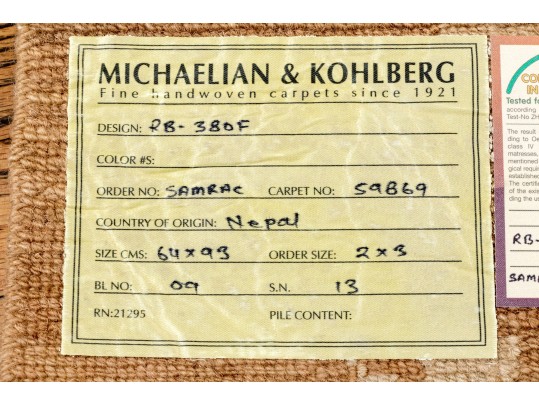 MICHAELIAN & KOHLBERG
Fine handwoven carpets since 1921
DESIGN: RB-380F
COLOR #S:
ORDER NO: SAMRAC CARPET NO: 59869
COUNTRY OF ORIGIN: Nepal
SIZE CMS: 64x93 ORDER SIZE: 2x3
BL NO: 09 S.N. 13
RN:21295 PILE CONTENT:
CO
IN
Tested fo
according
Test-No ZH
The result
ding to De
class IV
matresses,
mentioned
gical requir
established
The certifi
of the exis
ding the us
RB-
SAM